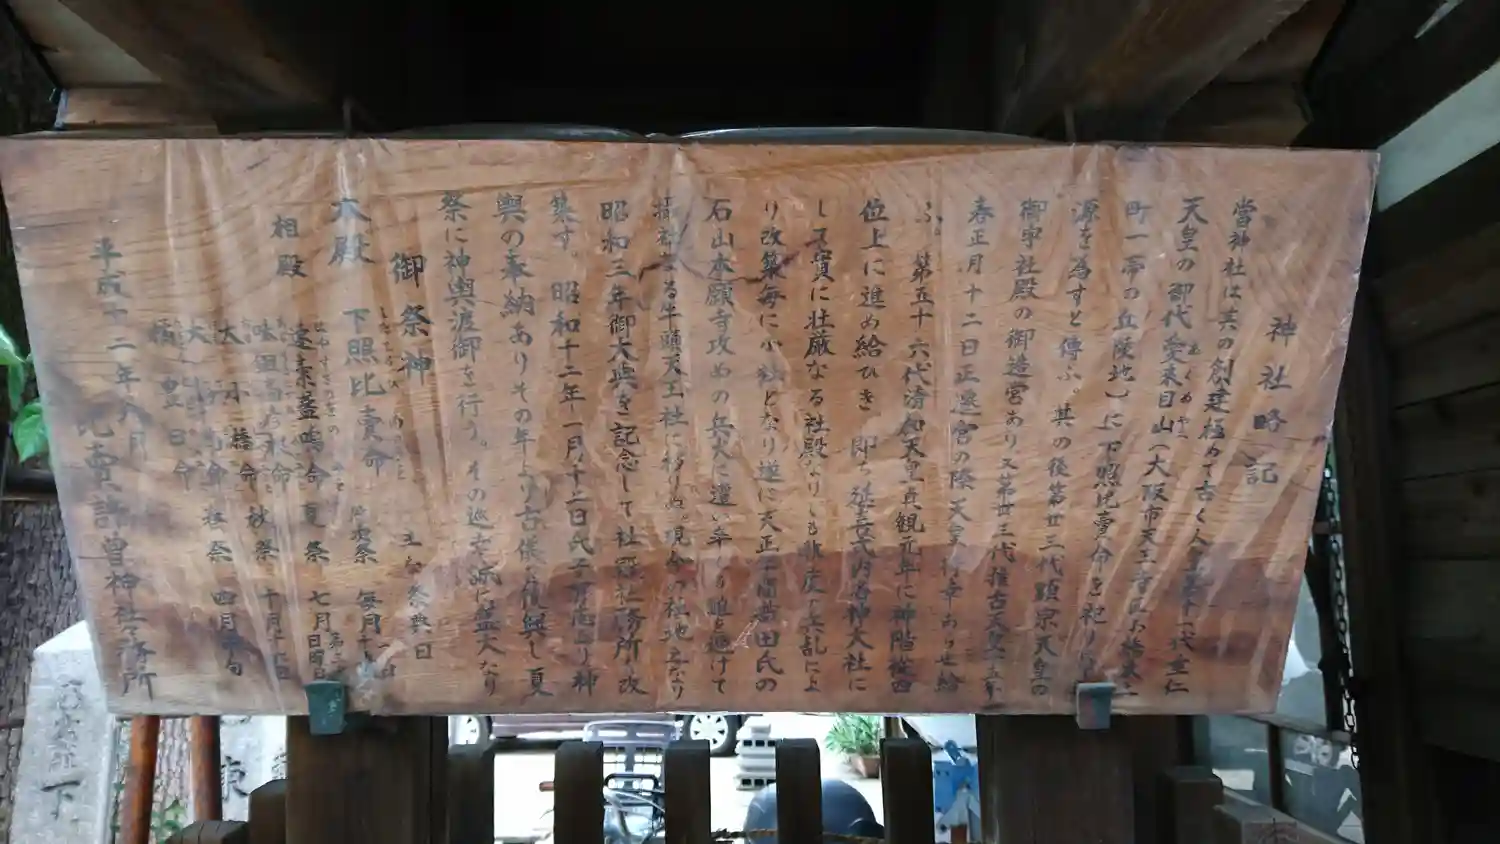 神社略記
當神社は其の創建極めて古く人皇第十一代垂仁
天皇の御代愛来目山(大阪市天王寺区小橋東之
町一帯の丘陵地)に下照比賣命を祀り
源を為すと傳ふ。其の後第廿三代顕宗天皇の
御宇社殿の御造営あり又第卅三代推古天皇十五年
春正月十二日正遷宮の際天皇行幸あらせ給
ふ。第五十六代清和天皇貞観元年に神階從四
位上に進め給ひき。即ち延喜式内名神大社に
して實に壮厳なる社殿なりしも非度の兵乱によ
り改築毎に小社となり遂に天正年間織田氏の
石山本願寺攻めの兵火に遭い辛うじて難を避けて
攝社なる牛頭天王社に移りぬ。現今の社地之なり
昭和三年御大典を記念して社殿社務所を改
築す。昭和十二年一月十三日氏子有志より神
輿の奉納ありその年より古儀を復興し夏
祭に神輿渡御を行う。その巡幸派に盛大なり
御祭神 主な祭典日
本殿 下照比賣命 したてるひめのみこと 月次祭 毎月十五日
相殿 速素盞嗚命 夏祭 七月
味耜高彦根命 秋祭 十月十六日
大小橋命
大鷦鷯命 祭 四月中旬
橘豊日命
平成十二年八月
比賣許曽神社社務所
下
東